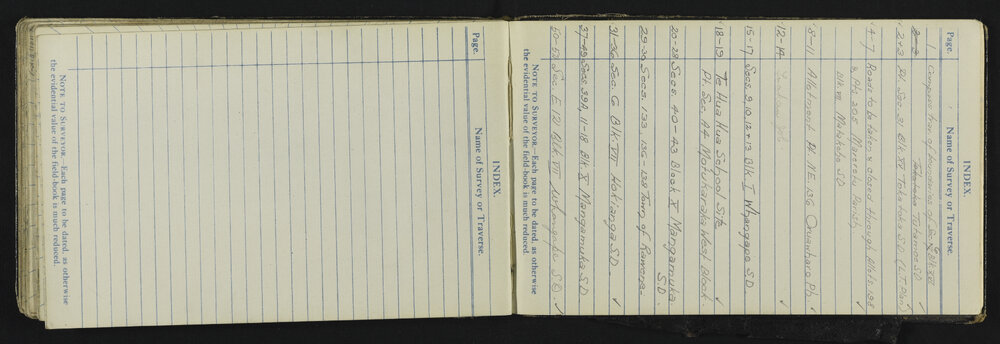 INDEX.
Page.
Name of Survey or Traverse.
1 Comparison of bearings of Sec 9 Blk XVI
2+3 Takahue Takahue SD
2+3 Pt. Sec. 31 Blk XVI Takahue S.D. (L.T. Plan)
4-7 Roads to be taken & closed through Allots. 138
& Pt. 205 Maraeroa Parish
Blk VII Motukaka SD
8-11 Allotment Pt. NE 136 Oruawharo Ph.
12-14
15-17 Secs. 9, 10, 12 + 13 Blk I Whangape S.D.
18-19 Te Hua Hua School Site
Pt. Sec. A4 Motukaraka West Block.
20-28 Secs. 40-43 Block X Mangamuka
S.D.
29-30 Secs. 133 136-138 Town of Rawene
31-36 Sec. G Blk. VII Hokianga S.D.
37-49 Secs 39A, 11-18 Blk X Mangamuka S.D
50-57 Sec. E 12 Blk VII Whangape S.D.
NOTE TO SURVEYOR.—Each page to be dated, as otherwise
the evidential value of the field-book is much reduced.
INDEX.
Page.
Name of Survey or Traverse.
NOTE TO SURVEYOR.—Each page to be dated, as otherwise
the evidential value of the field-book is much reduced.